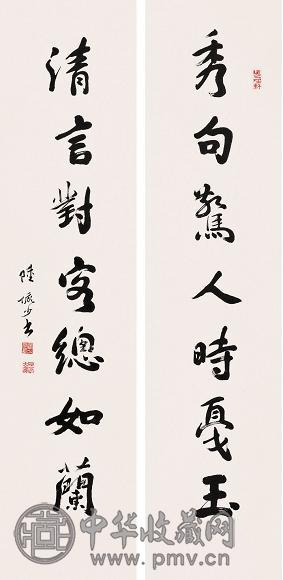 秀句驚人時戛玉
清言對客總如蘭
陸儼少書
中华收藏网
www.pmv.cn